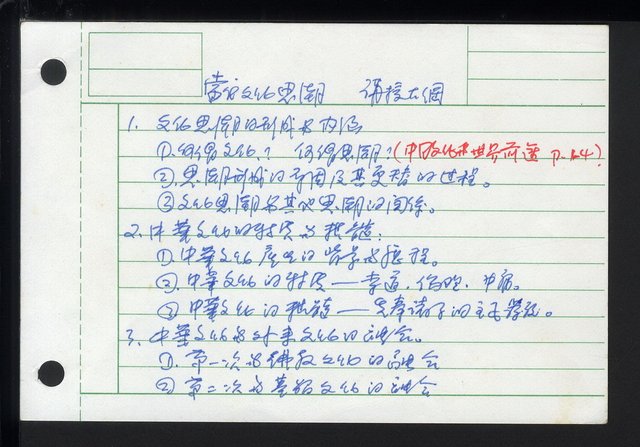 當代文化思潮 講授大綱
1. 文化思潮的形成與內涵
①. 何謂文化？ 何謂思潮？(中國文化與世界前途 P.1-4)
②. 思潮形成的原因及其更替的過程。
③ 文化思潮與其他思潮的關係。
2. 中華文化的特質與擴鎔：
①. 中華文化產生的背景與歷程。
②. 中華文化的特質——孝道、倫理、中庸。
③ 中華文化的——先秦諸子的主要學說。
3. 中華文化與外來文化的融合。
①. 第一次與佛教文化的融合
② 第二次與基督文化的融合